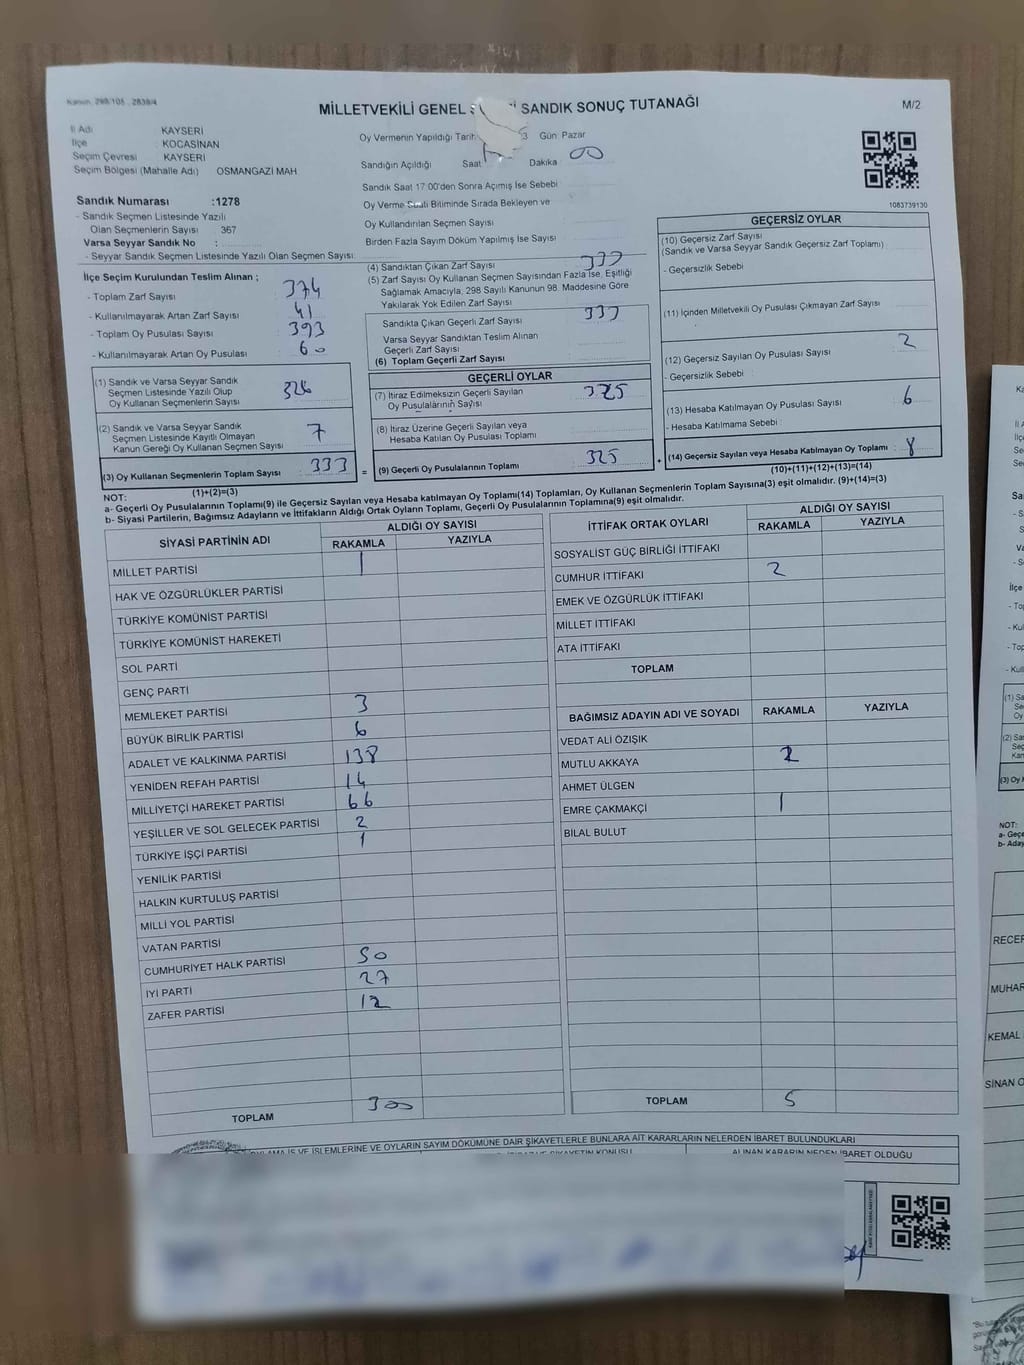 Kanun: 298/105 , 2839/4
MİLLETVEKİLİ GENEL SANDIK SONUÇ TUTANAĞI
M/2
İl Adı KAYSERİ
İlçe : KOCASİNAN
Seçim Çevresi : KAYSERİ
Seçim Bölgesi (Mahalle Adı) OSMANGAZİ MAH
Sandık Numarası :1278
- Sandık Seçmen Listesinde Yazılı
Olan Seçmenlerin Sayısı 367
Varsa Seyyar Sandık No :
- Seyyar Sandık Seçmen Listesinde Yazılı Olan Seçmen Sayısı:
Oy Vermenin Yapıldığı Tarih 3 Gün: Pazar
Sandığın Açıldığı Saat Dakika 00
Sandık Saat 17:00'den Sonra Açımış İse Sebebi :
Oy Verme Saati Bitiminde Sırada Bekleyen ve
Oy Kullandırılan Seçmen Sayısı
Birden Fazla Sayım Döküm Yapılmış İse Sayısı
1083739130
İlçe Seçim Kurulundan Teslim Alınan ;
- Toplam Zarf Sayısı 374
- Kullanılmayarak Artan Zarf Sayısı : 41
- Toplam Oy Pusulası Sayısı 393
- Kullanılmayarak Artan Oy Pusulası : 60
(1) Sandık ve Varsa Seyyar Sandık
Seçmen Listesinde Yazılı Olup
Oy Kullanan Seçmenlerin Sayısı 326
(2) Sandık ve Varsa Seyyar Sandık
Seçmen Listesinde Kayıtlı Olmayan
Kanun Gereği Oy Kullanan Seçmen Sayısı 7
(3) Oy Kullanan Seçmenlerin Toplam Sayısı 333
(1)+(2)=(3)
(4) Sandıktan Çıkan Zarf Sayısı 333
(5) Zarf Sayısı Oy Kullanan Seçmen Sayısından Fazla İse, Eşitliği
Sağlamak Amacıyla, 298 Sayılı Kanunun 98. Maddesine Göre
Yakılarak Yok Edilen Zarf Sayısı
Sandıkta Çıkan Geçerli Zarf Sayısı 333
Varsa Seyyar Sandıktan Teslim Alınan
Geçerli Zarf Sayısı
(6) Toplam Geçerli Zarf Sayısı
GEÇERLİ OYLAR
(7) İtiraz Edilmeksizin Geçerli Sayılan
Oy Pusulalarının Sayısı 325
(8) İtiraz Üzerine Geçerli Sayılan veya
Hesaba Katılan Oy Pusulası Toplamı
= (9) Geçerli Oy Pusulalarının Toplamı 325
GEÇERSİZ OYLAR
(10) Geçersiz Zarf Sayısı
(Sandık ve Varsa Seyyar Sandık Geçersiz Zarf Toplamı)
- Geçersizlik Sebebi
(11) İçinden Milletvekili Oy Pusulası Çıkmayan Zarf Sayısı
(12) Geçersiz Sayılan Oy Pusulası Sayısı 2
- Geçersizlik Sebebi :
(13) Hesaba Katılmayan Oy Pusulası Sayısı 6
- Hesaba Katılmama Sebebi :
+ (14) Geçersiz Sayılan veya Hesaba Katılmayan Oy Toplamı : 8
(10)+(11)+(12)+(13)=(14)
NOT:
a- Geçerli Oy Pusulalarının Toplamı(9) ile Geçersiz Sayılan veya Hesaba katılmayan Oy Toplamı(14) Toplamları, Oy Kullanan Seçmenlerin Toplam Sayısına(3) eşit olmalıdır. (9)+(14)=(3)
b- Siyasi Partilerin, Bağımsız Adayların ve İttifakların Aldığı Ortak Oyların Toplamı, Geçerli Oy Pusulalarının Toplamına(9) eşit olmalıdır.
SİYASİ PARTİNİN ADI ALDIĞI OY SAYISI
RAKAMLA YAZIYLA
MİLLET PARTİSİ 1
HAK VE ÖZGÜRLÜKLER PARTİSİ
TÜRKİYE KOMÜNİST PARTİSİ
TÜRKİYE KOMÜNİST HAREKETİ
SOL PARTİ
GENÇ PARTİ
MEMLEKET PARTİSİ 3
BÜYÜK BİRLİK PARTİSİ 6
ADALET VE KALKINMA PARTİSİ 138
YENİDEN REFAH PARTİSİ 14
MİLLİYETÇİ HAREKET PARTİSİ 66
YEŞİLLER VE SOL GELECEK PARTİSİ 2
TÜRKİYE İŞÇİ PARTİSİ 1
YENİLİK PARTİSİ
HALKIN KURTULUŞ PARTİSİ
MİLLİ YOL PARTİSİ
VATAN PARTİSİ
CUMHURİYET HALK PARTİSİ 50
İYİ PARTİ 27
ZAFER PARTİSİ 12
TOPLAM 300
İTTİFAK ORTAK OYLARI ALDIĞI OY SAYISI
RAKAMLA YAZIYLA
SOSYALİST GÜÇ BİRLİĞİ İTTİFAKI
CUMHUR İTTİFAKI 2
EMEK VE ÖZGÜRLÜK İTTİFAKI
MİLLET İTTİFAKI
ATA İTTİFAKI
TOPLAM
BAĞIMSIZ ADAYIN ADI VE SOYADI RAKAMLA YAZIYLA
VEDAT ALİ ÖZIŞIK
MUTLU AKKAYA 2
AHMET ÜLGEN
EMRE ÇAKMAKÇİ 1
BİLAL BULUT
TOPLAM 5
İŞ VE İŞLEMLERİNE VE OYLARIN SAYIM DÖKÜMÜNE DAİR ŞİKAYETLERLE BUNLARA AİT KARARLARIN NELERDEN İBARET BULUNDUKLARI
ALINAN KARARIN NEDEN İBARET OLDUĞU
NOT:
RECEP
MUHAR
KEMAL
SİNAN O